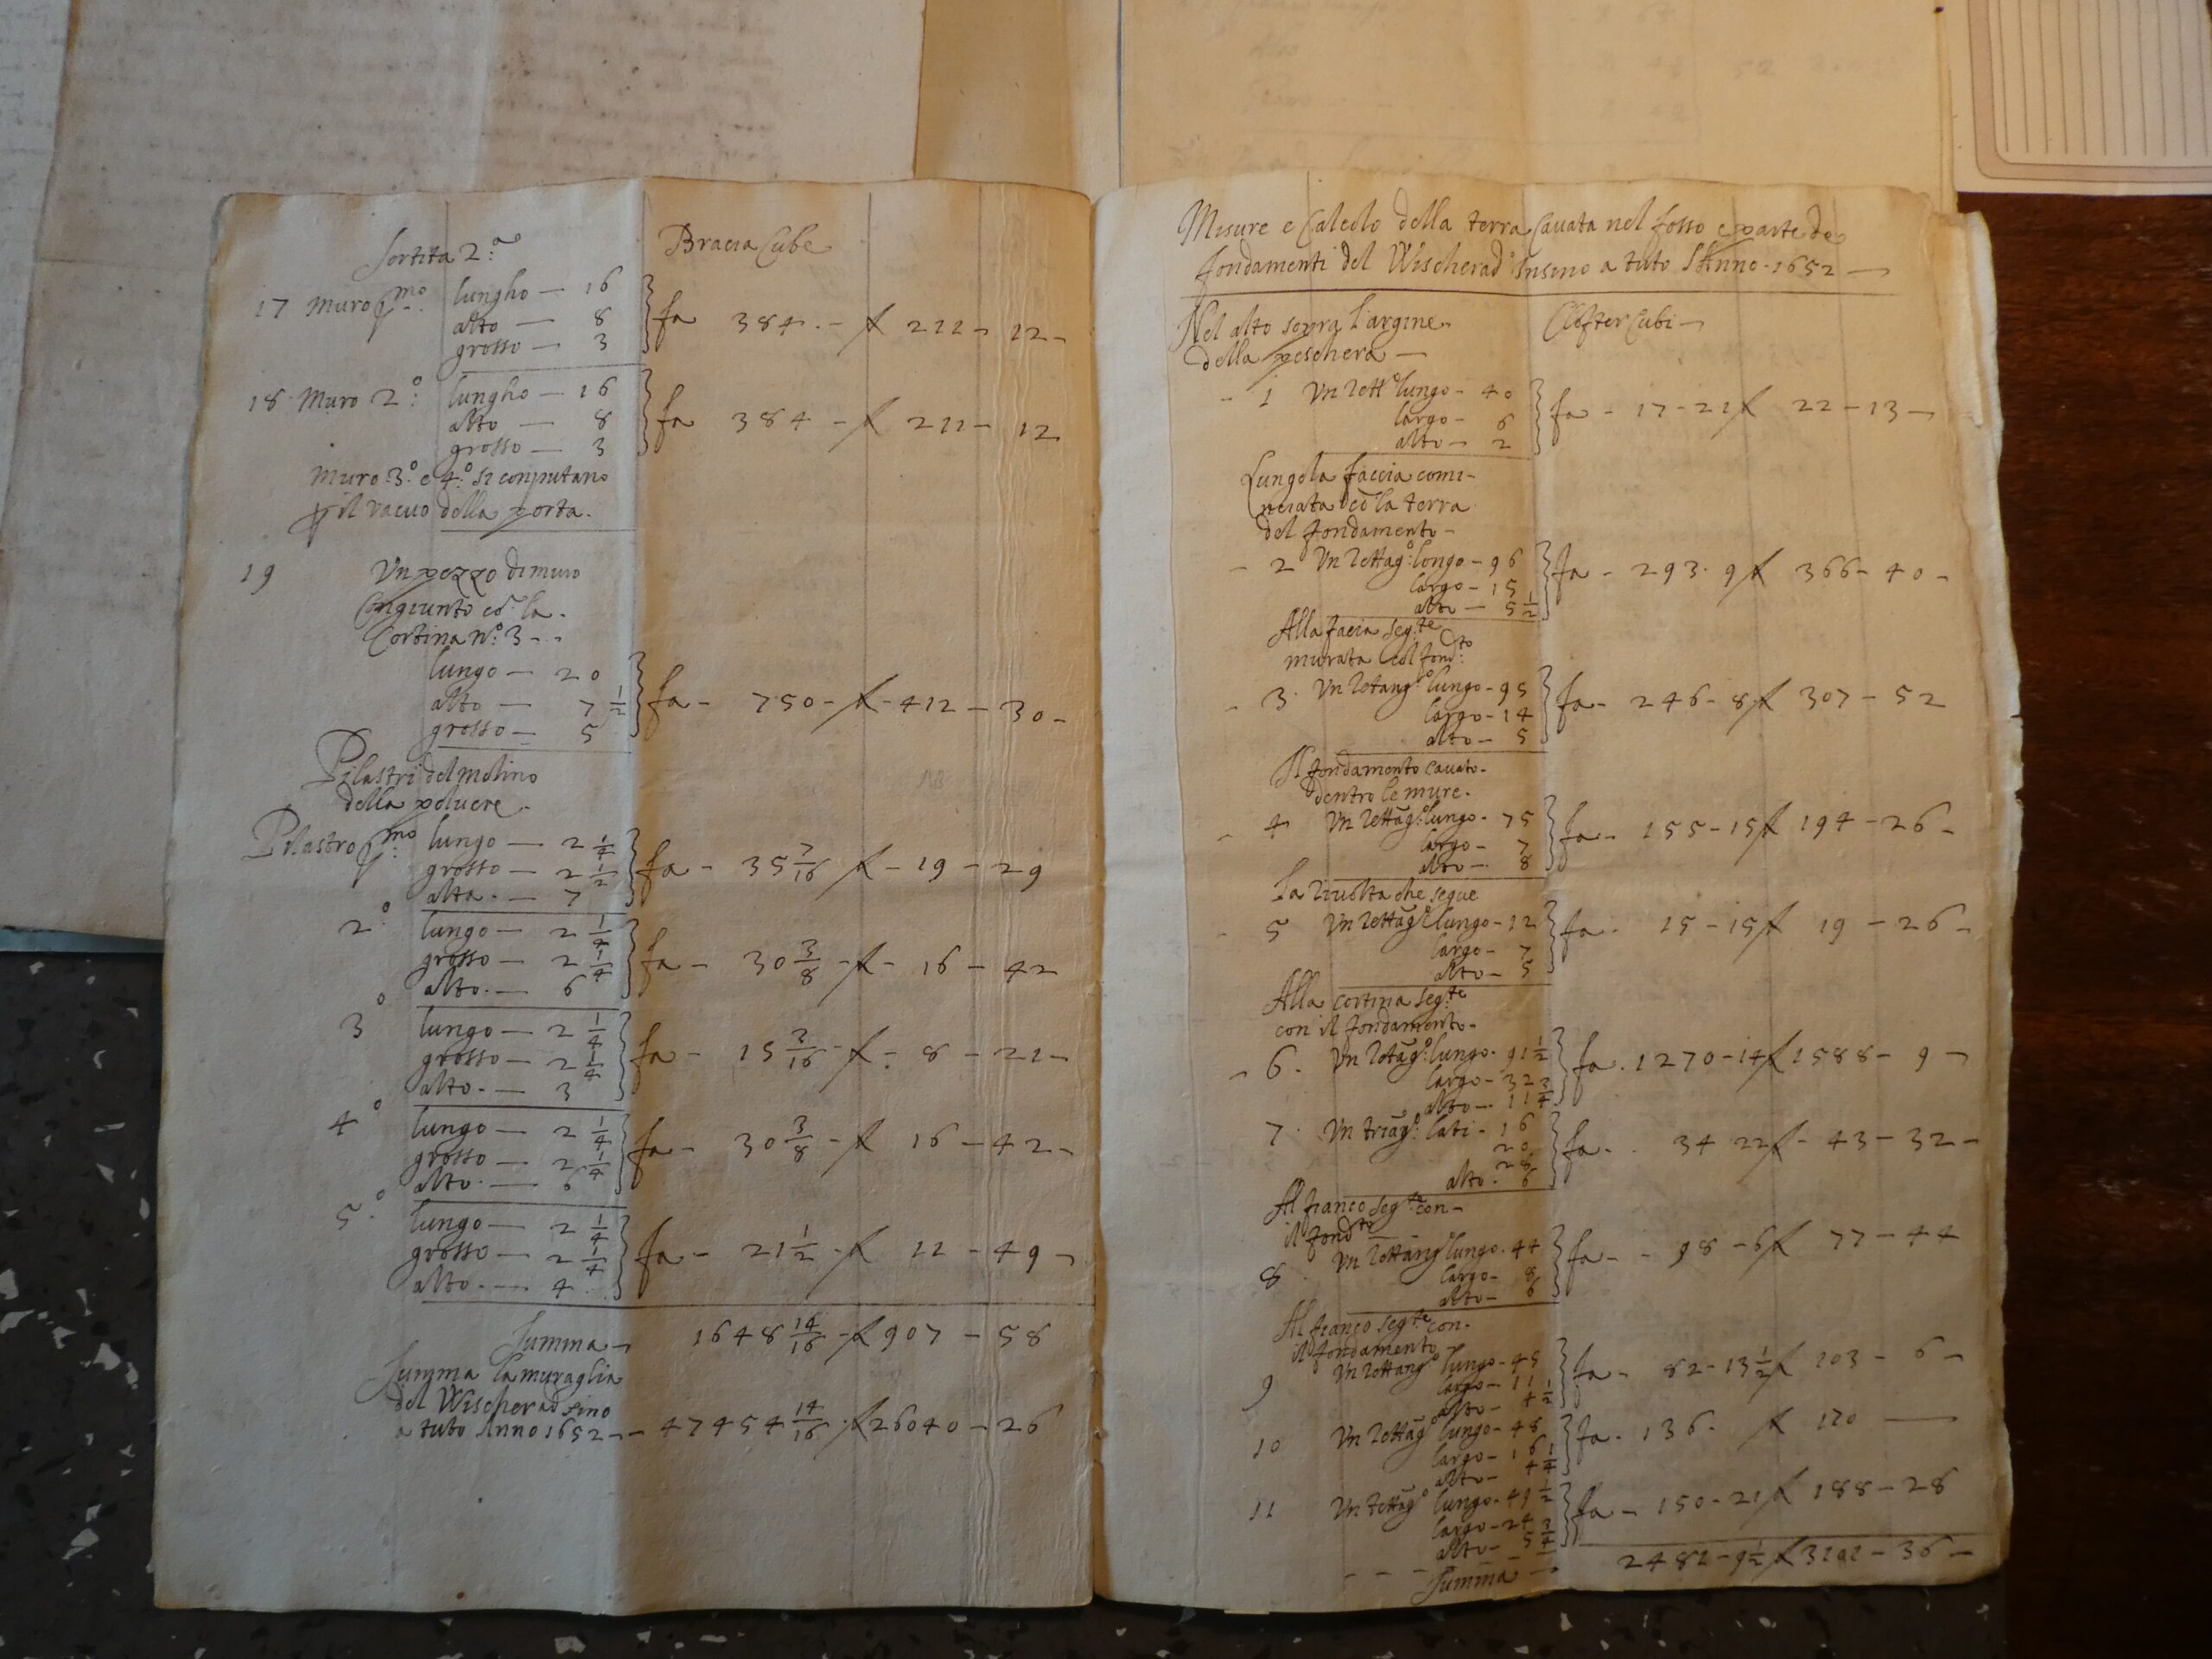 Sortita 2.a
Bracia Cube
17 Muro p.mo lungho — 16
alto — 8
grosso — 3
fa 384 . - f 211 - 12 -
18 Muro 2.o lungho — 16
alto — 8
grosso — 3
fa 384 - f 211 - 12
Muro 3.o e 4.o si computano
p il vacuo della porta.
19 Un pezzo di muro
Congiunto co la
Cortina n.o 3 - -
lungo — 20
alto — 7 1/2
grosso — 5
fa - 750 - f - 412 - 30 -
Pilastri del molino
della poluere -
Pilastro p.mo lungo — 2 1/4
grosso — 2 1/2
alto - — 7
fa - 35 7/16 f - 19 - 29
2.o lungo — 2 1/4
grosso — 2 1/4
alto. — 6
fa - 30 3/8 - f - 16 - 42
3.o lungo — 2 1/4
grosso — 2 1/4
alto - — 3
fa - 15 3/16 - f - 8 - 21 -
4.o lungo — 2 1/4
grosso — 2 1/4
alto. — 6
fa - 30 3/8 - f 16 - 42 -
5.o lungo — 2 1/4
grosso — 2 1/4
alto - — 4
fa - 21 1/2 - f 11 - 49 -
Summa - 1648 14/16 - f 907 - 58
Summa la muraglia
del Wischerad sino
a tuto Anno 1652 - - 47454 14/16 . f 26040 - 26
Misure e Calcolo della terra Cauata nel fosso e parte de
fondamenti del Wischerad insino a tuto l'Anno - 1652 —
Nel alto sopra l'argine -
della peschera —
Clofter Cubi -
- 1 Un rett.o lungo - 40
largo - 6
alto - 2
fa - 17 - 21 f 22 - 13 -
Lungo la faccia comi-
nciata co la terra
del fondamento -
- 2 Un rettag.o longo - 96
largo - 15
alto — 5 1/2
fa - 293 . 9 f 366 - 40 -
Alla facia seg.te
murata col fond.to
- 3 . Un retang.o lungo - 95
largo - 14
alto - 5
fa - 246 - 8 f 307 - 52
Il fondamento cauato -
dentro le mure.
- 4 Un rettag.o lungo - 75
largo - 7
alto - 8
fa - 155 - 15 f 194 - 26 -
la riuolta che segue
- 5 Un rettag.o lungo - 12
largo - 7
alto - 5
fa - 15 - 15 f 19 - 26 -
Alla cortina seg.te
con il fondamento -
- 6 . Un retag.o lungo - 91 1/2
largo - 32
fa . 1270 - 14 f 1588 - 9 -
7 . Un triag.o lati - 16
20
28
alto - 6
fa - . 34 22 f - 43 - 32 -
Al fianco seg.te con -
il fond.to
8 . Un rettang.o lungo . 44
largo - 8
alto - 6
fa - - 98 - 6 f 77 - 44
Al fianco seg.te con -
il fondamento
9 Un rettang.o lungo - 45
largo - 11
alto - 4 1/2
fa - 82 - 13 1/2 f 103 - 6 -
10 Un rettag.o lungo - 48
largo - 16
alto - 4 1/4
fa - 136 . f 170 —
11 Un rettag.o lungo - 49 1/2
largo - 24
alto - 5
fa - 150 - 21 f 188 - 28
Summa - 2482 - 9 1/2 f 3202 - 36 -